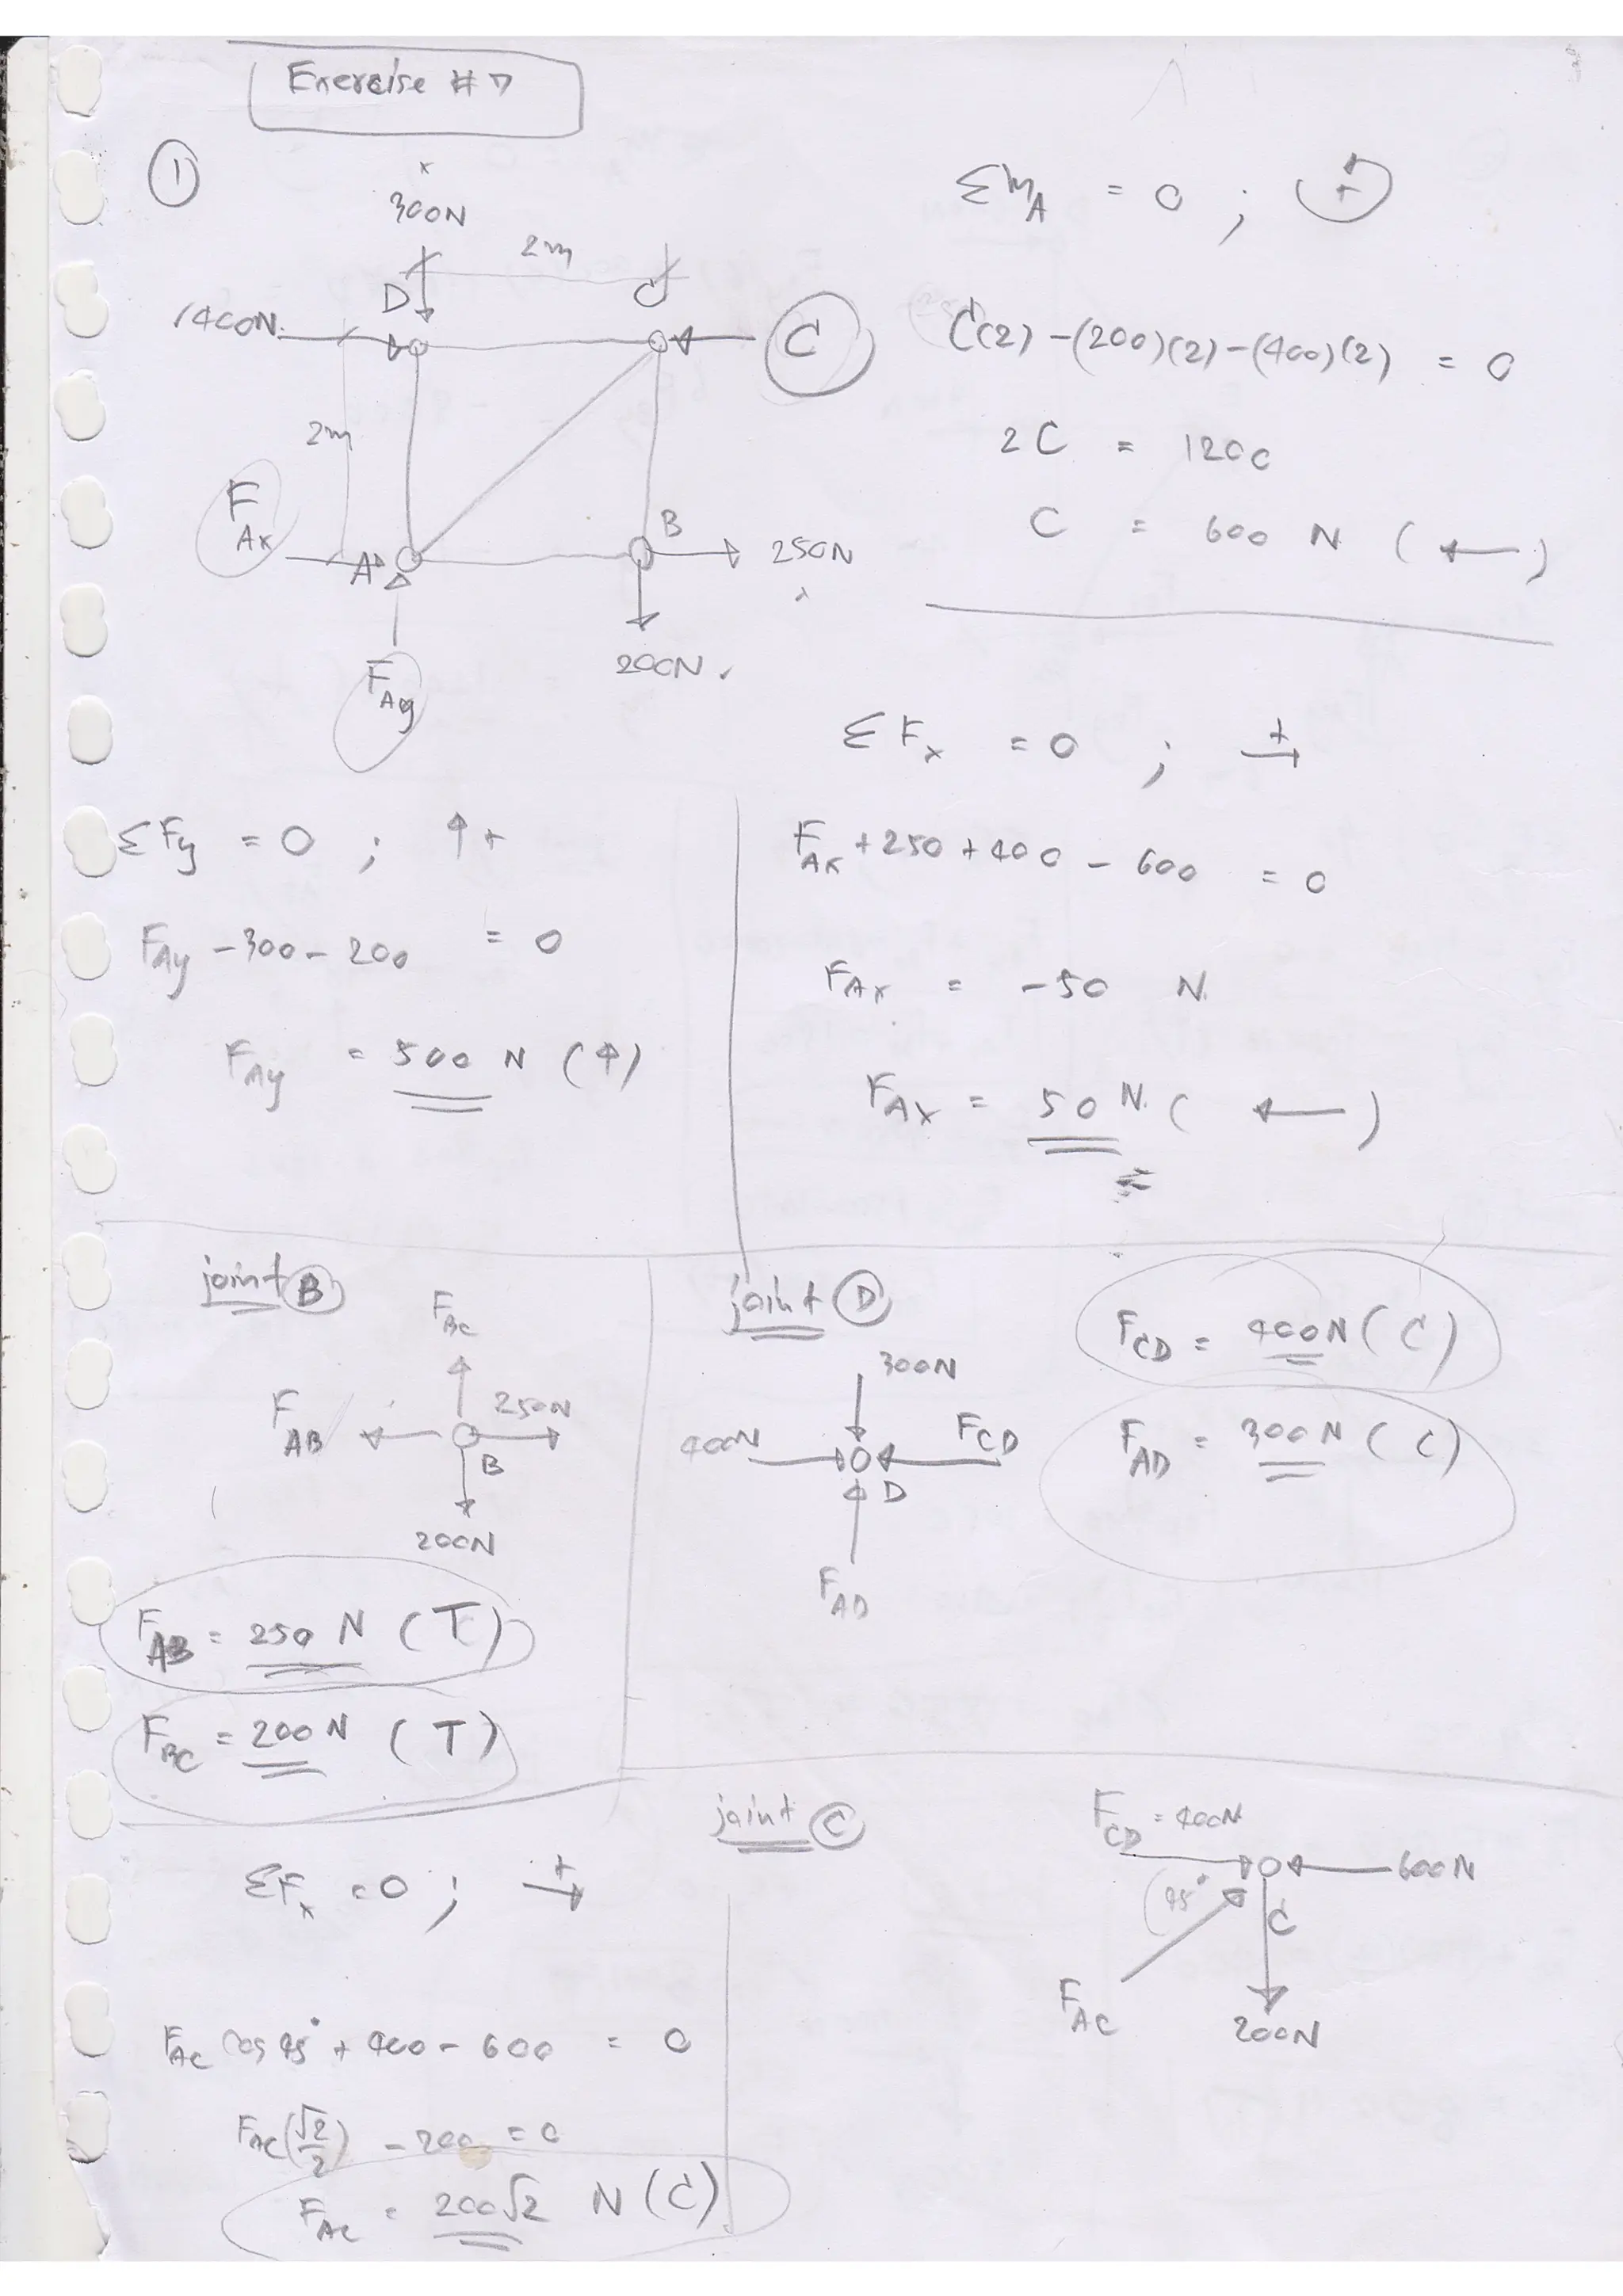 Exercise #7
①
300N
2m
D
C
400N
C
2m
F_Ax
A
B
250N
200N
F_Ay
ΣM_A = 0 ; +
C(2) - (200)(2) - (400)(2) = 0
2C = 1200
C = 600 N (←)
ΣF_x = 0 ; +→
F_Ax + 250 + 400 - 600 = 0
F_Ax = -50 N
F_Ax = 50 N (←)
ΣF_y = 0 ; ↑+
F_Ay - 300 - 200 = 0
F_Ay = 500 N (↑)
joint Ⓑ
F_BC
F_AB
250N
B
200N
F_AB = 250 N (T)
F_BC = 200 N (T)
joint Ⓓ
300N
400N
F_CD
D
F_AD
F_CD = 400N (C)
F_AD = 300N (C)
joint Ⓒ
F_CD = 400N
600N
45°
C
F_AC
200N
ΣF_x = 0 ; +→
F_AC cos 45° + 400 - 600 = 0
F_AC (√2/2) - 200 = 0
F_AC = 200√2 N (C)